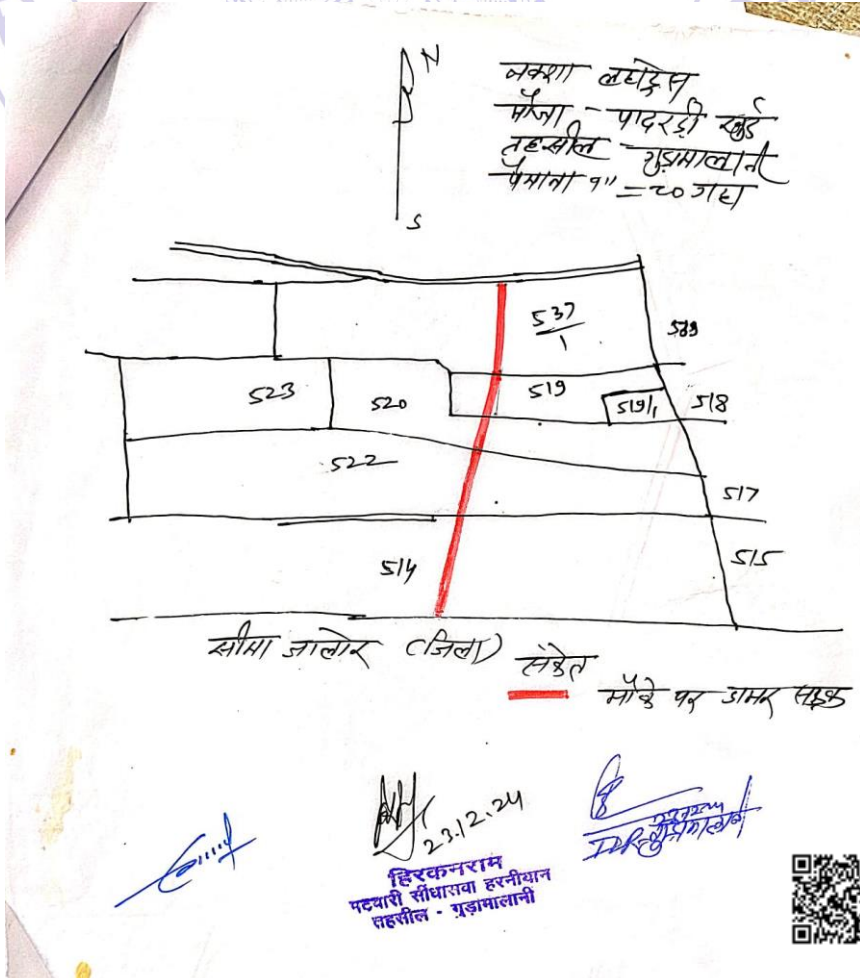 N
S
नकशा लट्ठाट्रेस
मौजा - पादरडी खुर्द
तहसील - गुडामालानी
पैमाना १" = २० गट्ठा
537/1
539
523
520
519
519/1
518
522
517
514
515
सीमा जालोर (जिला)
संकेत
मौके पर डामर सड़क
23.12.24
हिरकनराम
पटवारी सींधासवा हरनीयान
तहसील - गुड़ामालानी